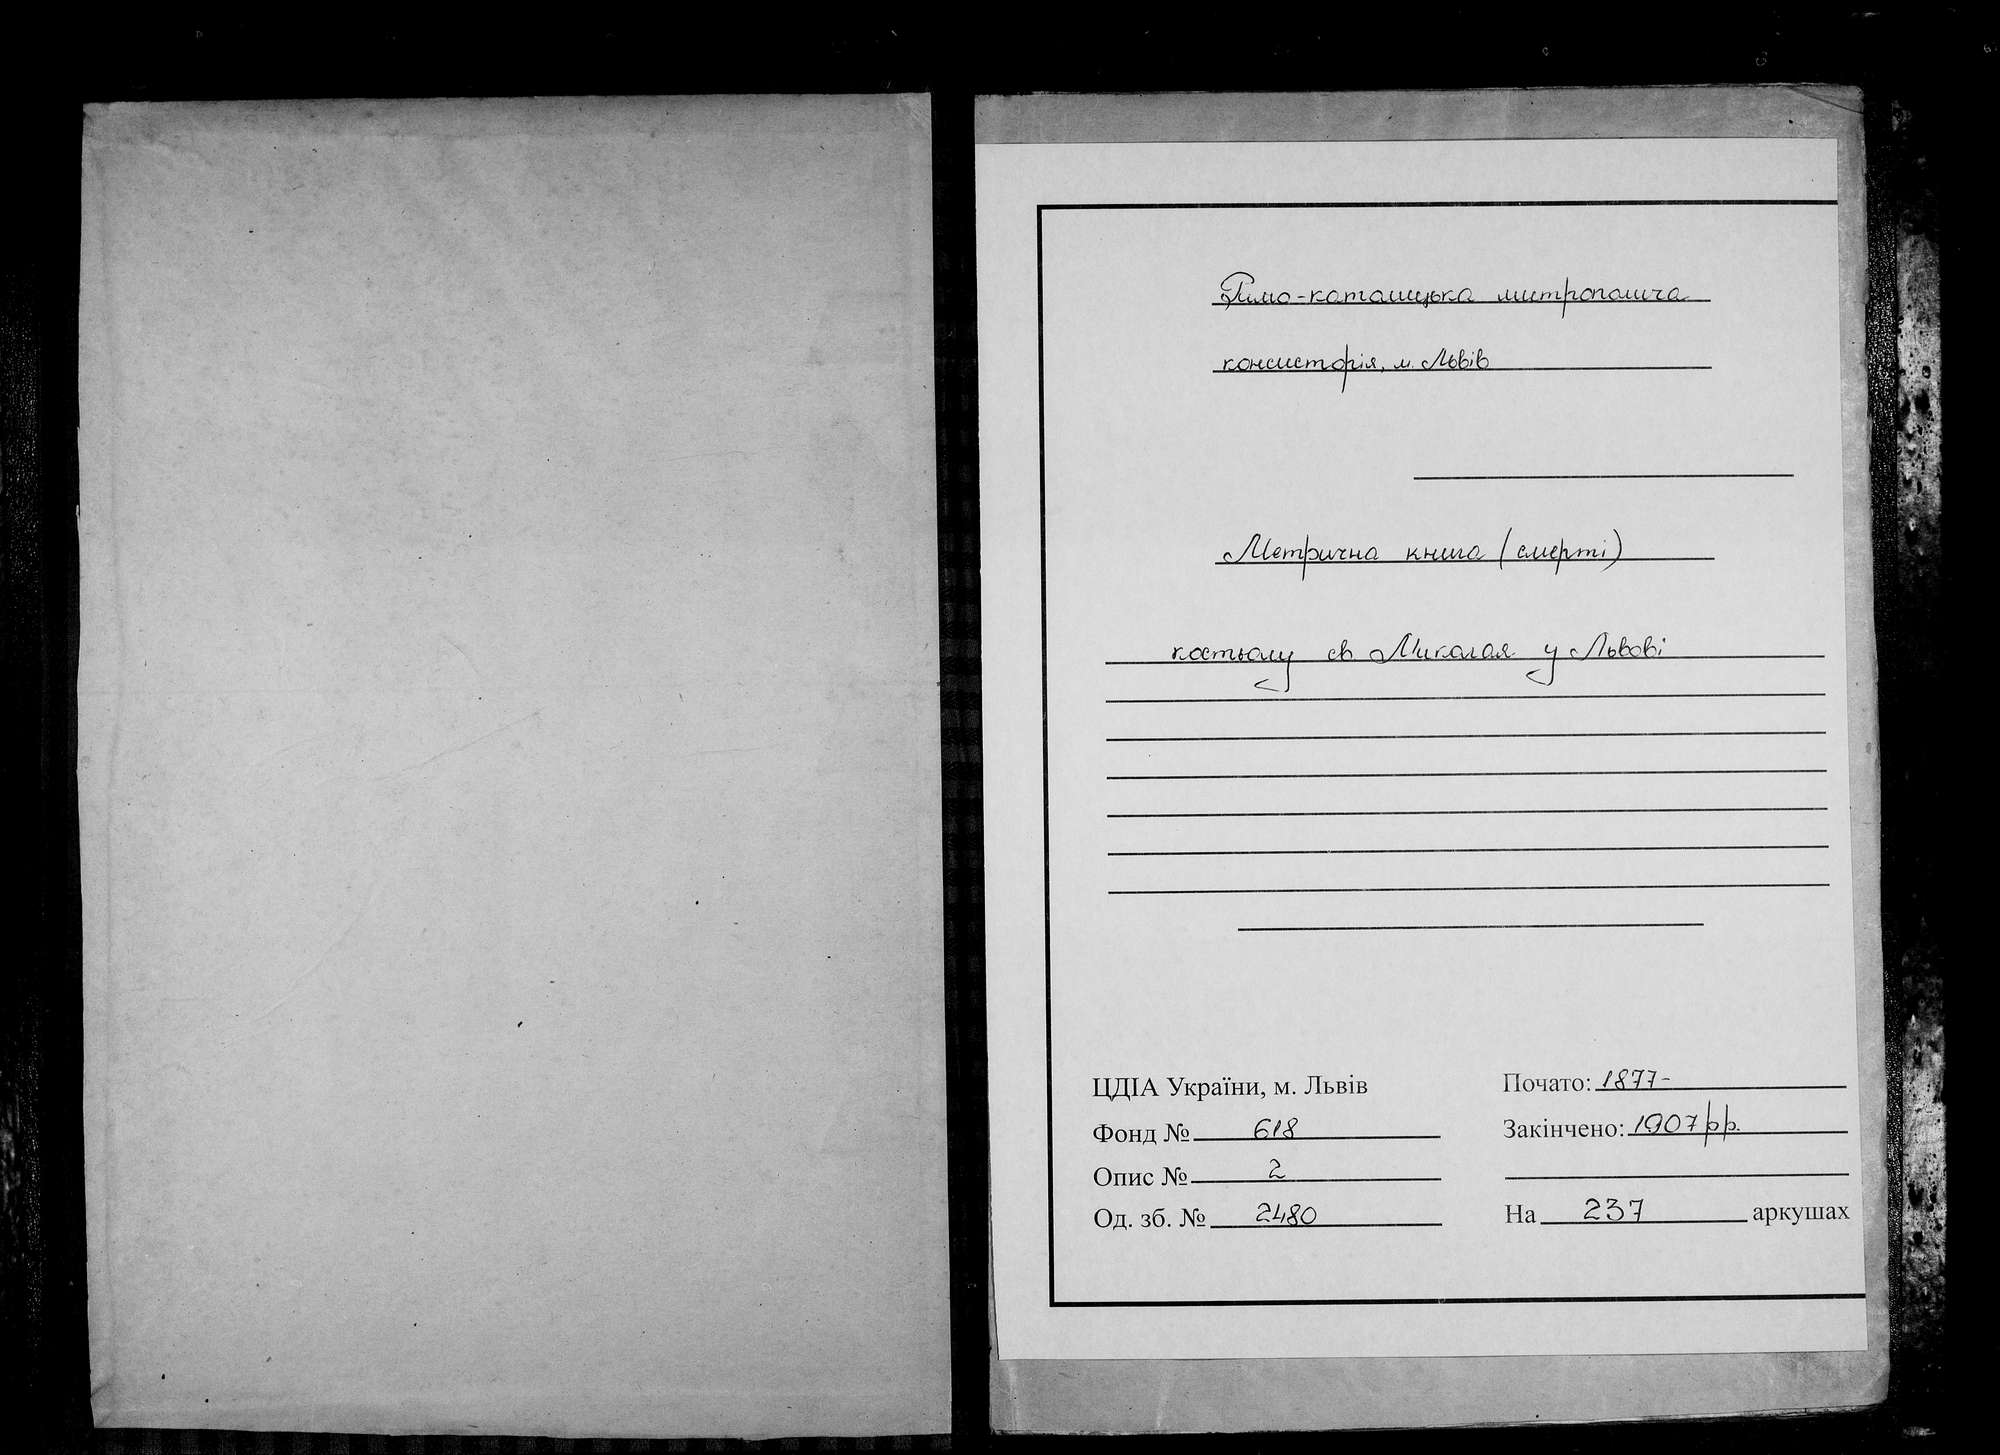 Римо-католицька митрополича
консисторія, м. Львів
Метрична книга (смерті)
костьолу св Миколая у Львові
ЦДІА України, м. Львів
Фонд № 618
Опис № 2
Од. зб. № 2480
Почато: 1877-
Закінчено: 1907 рр.
На 237 аркушах